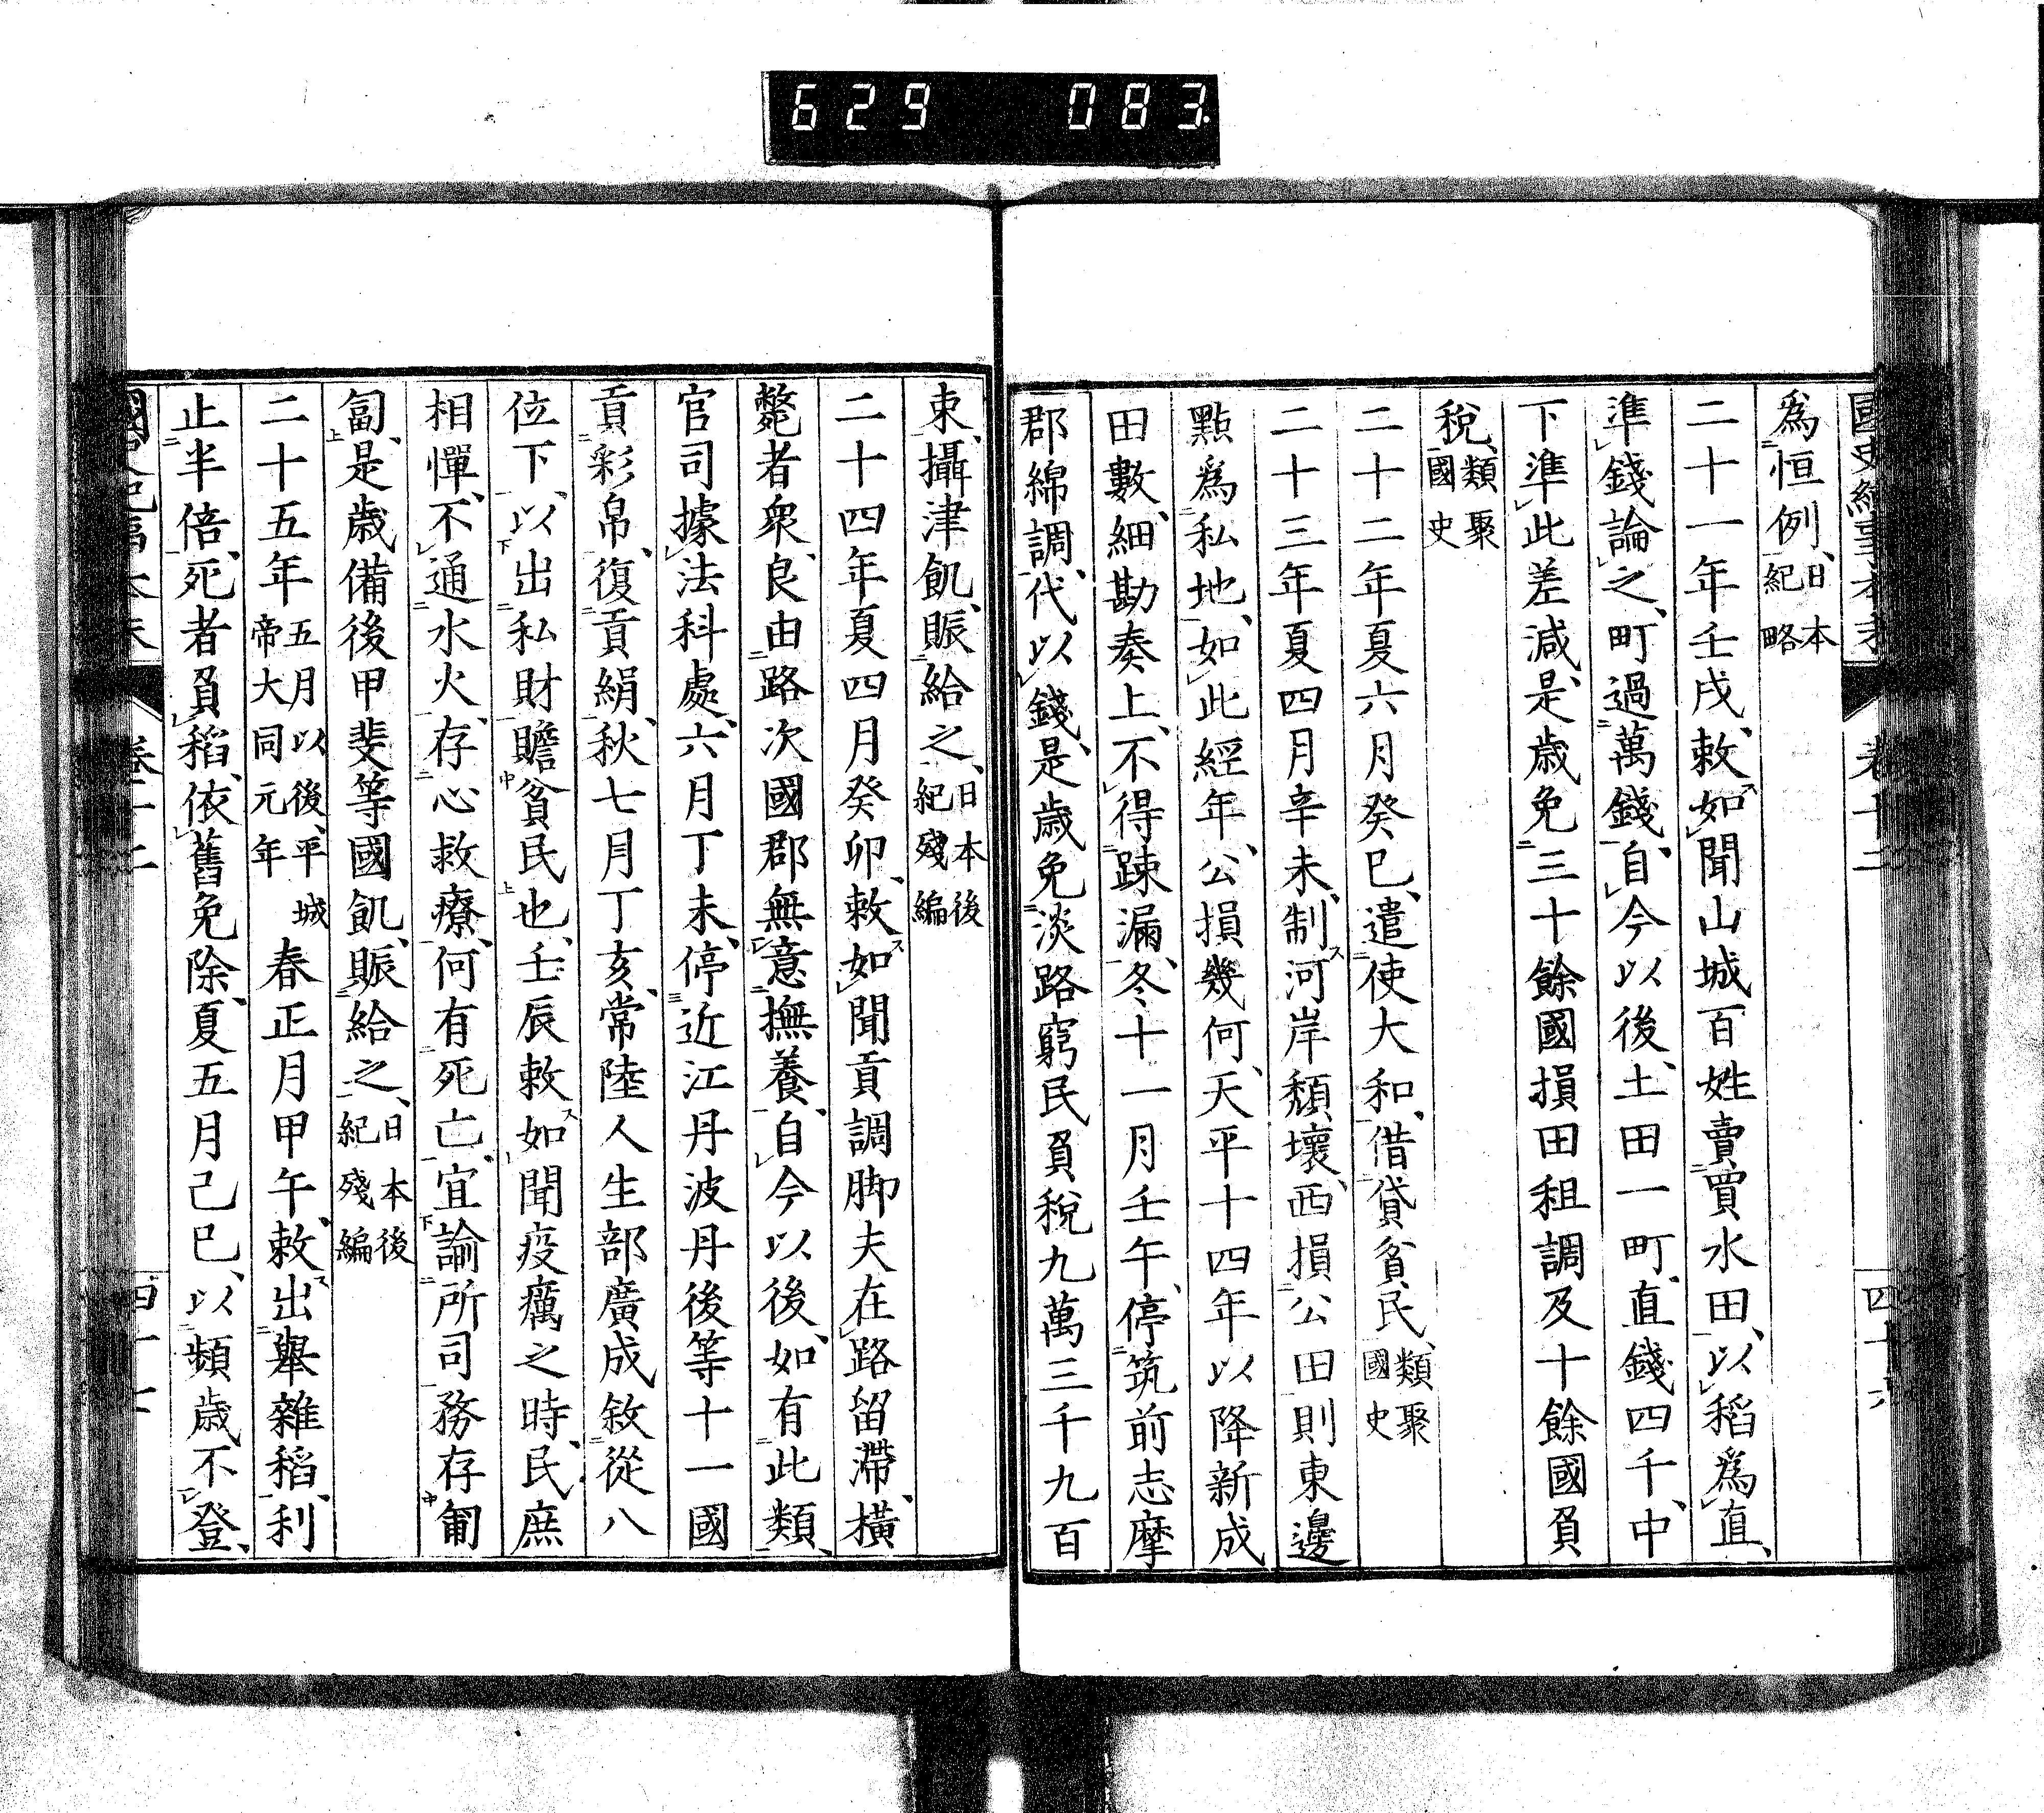 629 083
爲恒例、日本紀略
二十一年壬戌、敕、如聞山城百姓賣買水田、以稻爲直、
準錢論之、町過萬錢、自今以後、土田一町、直錢四千、中
下準此差減、是歲免三十餘國損田租調及十餘國負
稅、類聚國史
二十二年夏六月癸巳、遣使大和、借貸貧民、類聚國史
二十三年夏四月辛未、制河岸頽壞、西損公田則東邊
點爲私地、如此經年、公損幾何、天平十四年以降新成
田數、細勘奏上、不得踈漏、冬十一月壬午、停筑前志摩
郡綿調、代以錢、是歲免淡路窮民負稅九萬三千九百
束、攝津飢、賑給之、日本後紀殘編
二十四年夏四月癸卯、敕、如聞貢調脚夫在路留滯、橫
斃者衆、良由路次國郡無意撫養、自今以後、如有此類、
官司據法科處、六月丁未、停近江丹波丹後等十一國
貢彩帛、復貢絹、秋七月丁亥、常陸人生部廣成敘從八
位下、以出私財贍貧民也、壬辰敕如聞疫癘之時、民庶
相憚、不通水火、存心救療、何有死亡、宜諭所司務存匍
匐、是歲備後甲斐等國飢、賑給之、日本後紀殘編
二十五年五月以後、平城帝大同元年春正月甲午、敕、出擧雜稻、利
止半倍、死者負稻、依舊免除、夏五月己巳、以頻歲不登、
卷十二
四十六